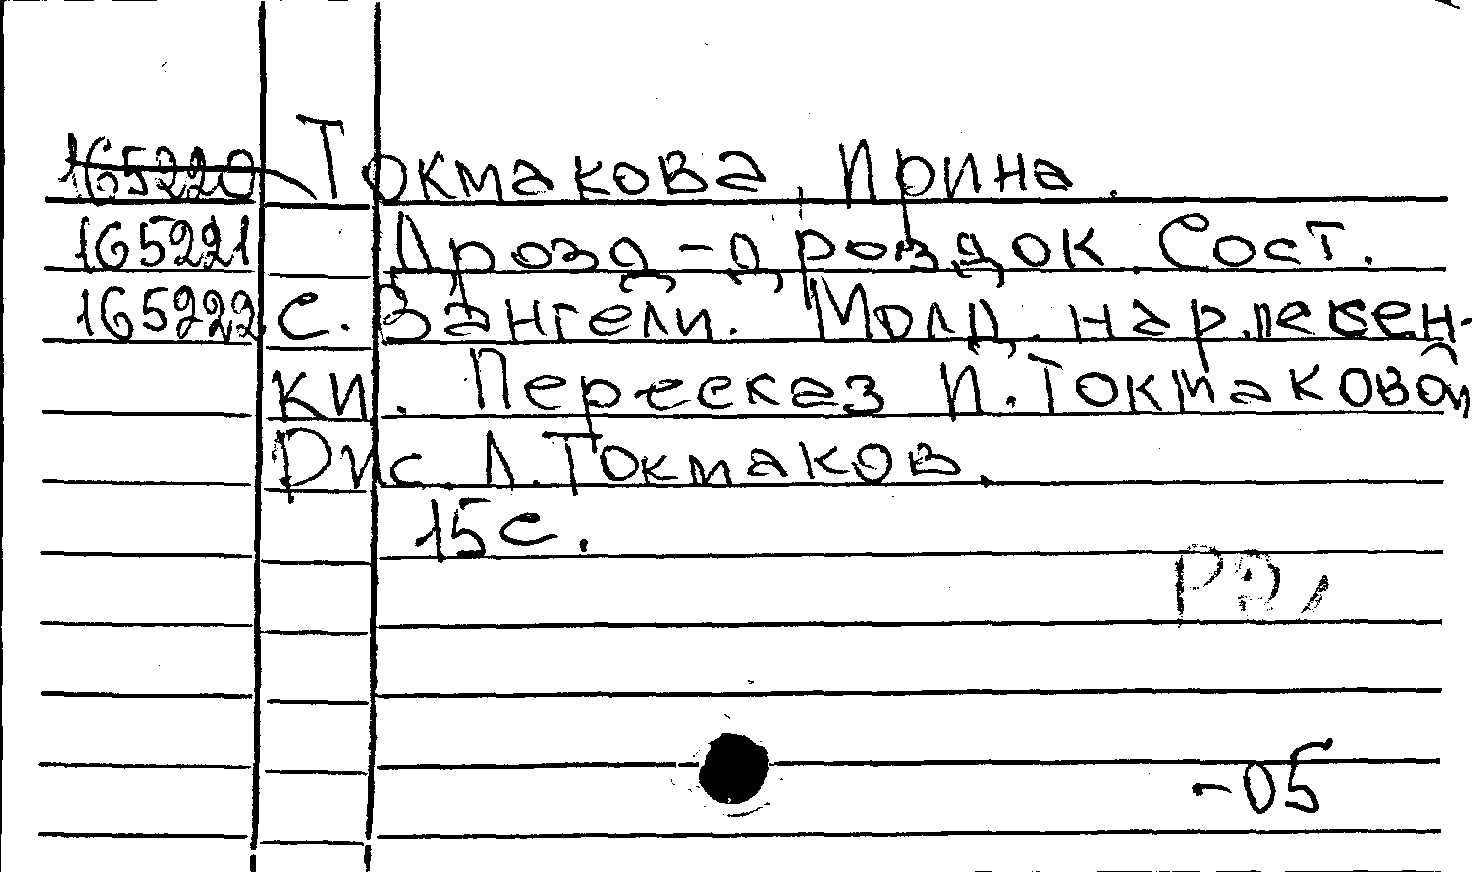 165220 Токмакова Ирина.
165221 Дрозд-дроздок. Сост.
165222 С. Вангели. Молд. нар. песен-
ки. Пересказ И. Токмаковой
Рис. Л. Токмаков.
15 с.
-05